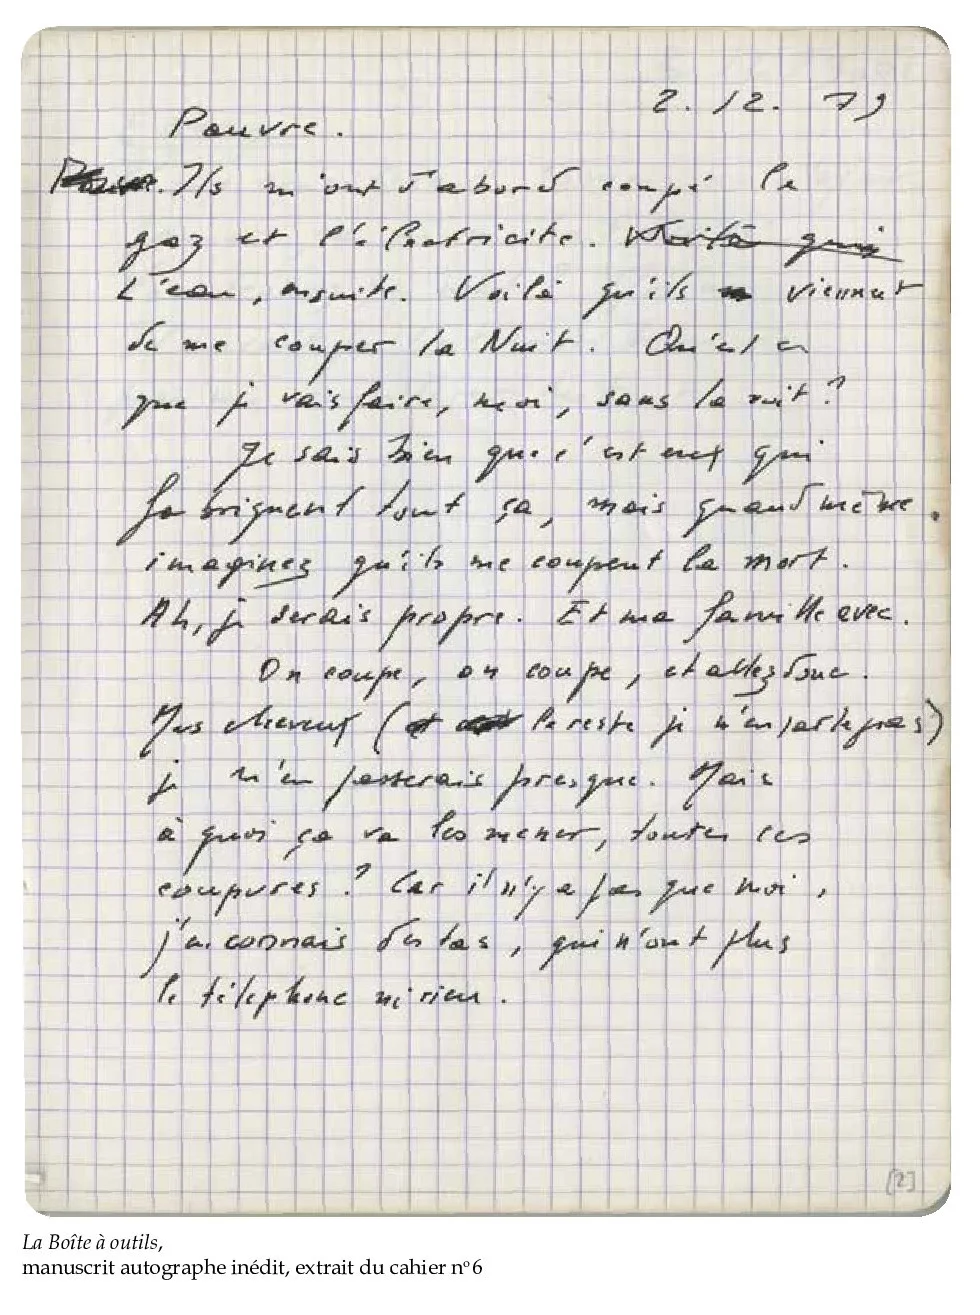 2.12.79
Pauvre.
Ils m'ont d'abord coupé le
gaz et l'électricité. Voilà qu'ils
L'eau, ensuite. Voilà qu'ils viennent
de me couper la Nuit. Qu'est ce
que je vais faire, moi, sans la nuit ?
Je sais bien que c'est eux qui
fabriquent tout ça, mais quand même.
imaginez qu'ils me coupent la mort.
Ah, je serais propre. Et ma famille avec.
On coupe, on coupe, et allez donc.
Mes cheveux ( le reste je n'en parle pas)
je m'en passerais presque. Mais
à quoi ça va les mener, toutes ces
coupures ? Car il n'y a pas que moi,
j'en connais des tas, qui n'ont plus
le téléphone ni rien.
[2]
La Boîte à outils,
manuscrit autographe inédit, extrait du cahier nº 6